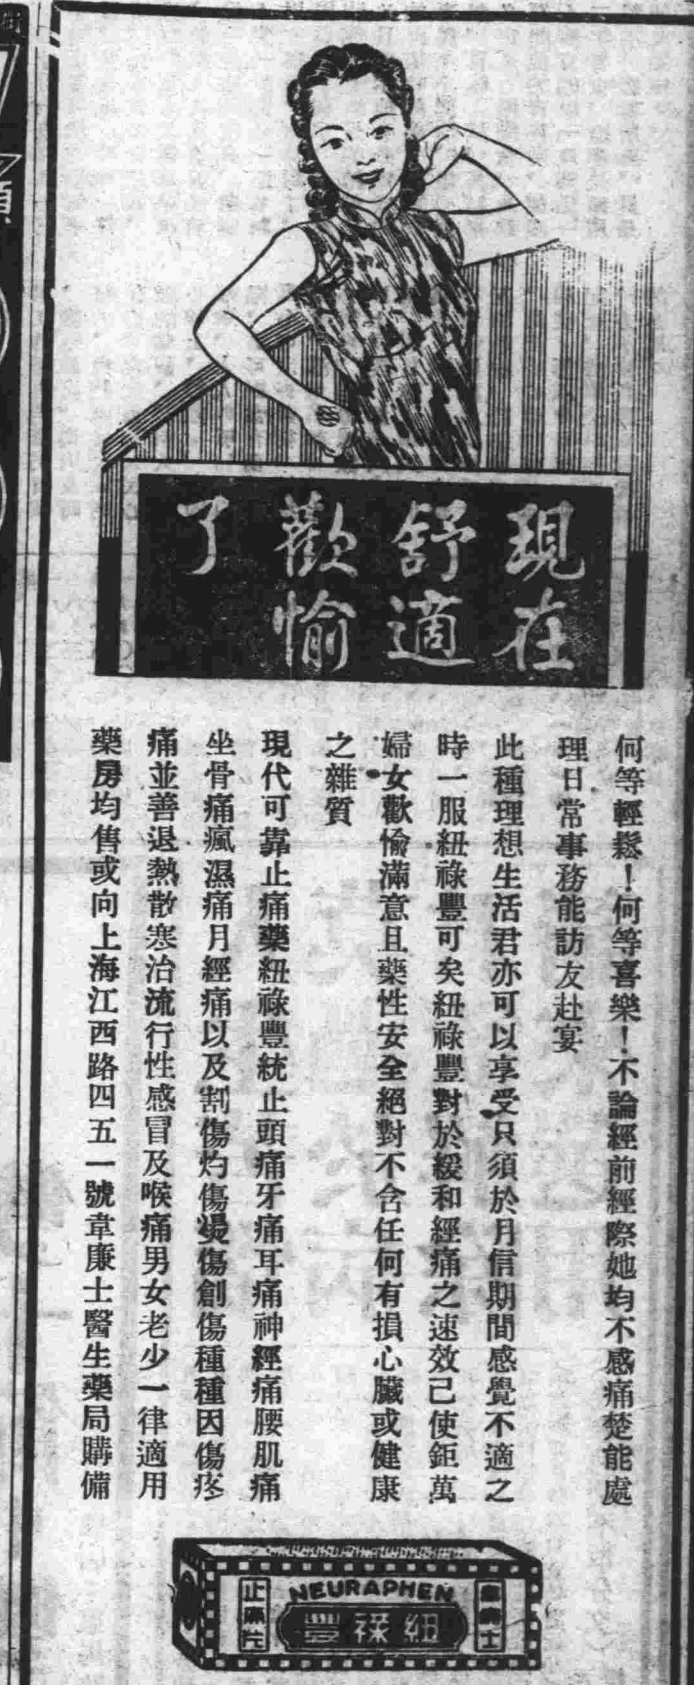 現在
舒適
歡愉
了
何等輕鬆！何等喜樂！不論經前經際她均不感痛楚能處
理日常事務能訪友赴宴
此種理想生活君亦可以享受只須於月信期間感覺不適之
時一服紐祿豐可矣紐祿豐對於緩和經痛之速效已使鉅萬
婦女歡愉滿意且藥性安全絕對不含任何有損心臟或健康
之雜質
現代可靠止痛藥紐祿豐統止頭痛牙痛耳痛神經痛腰肌痛
坐骨痛瘋濕痛月經痛以及割傷灼傷燙傷創傷種種因傷疼
痛並善退熱散寒治流行性感冒及喉痛男女老少一律適用
藥房均售或向上海江西路四五一號韋廉士醫生藥局購備
NEURAPHEN
韋廉士
紐祿豐
止痛片